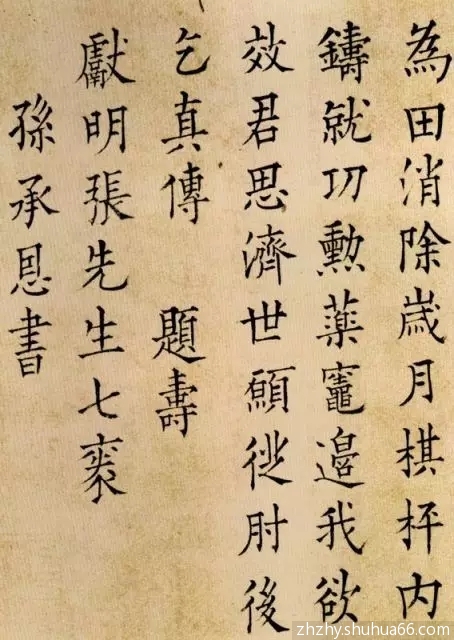 為田消除歲月棋枰內
鑄就功勲藥竈邉我欲
效君思濟世願從肘後
乞真傳 題壽
獻明張先生七袠
孫承恩書
zhzhyshuhua66.com